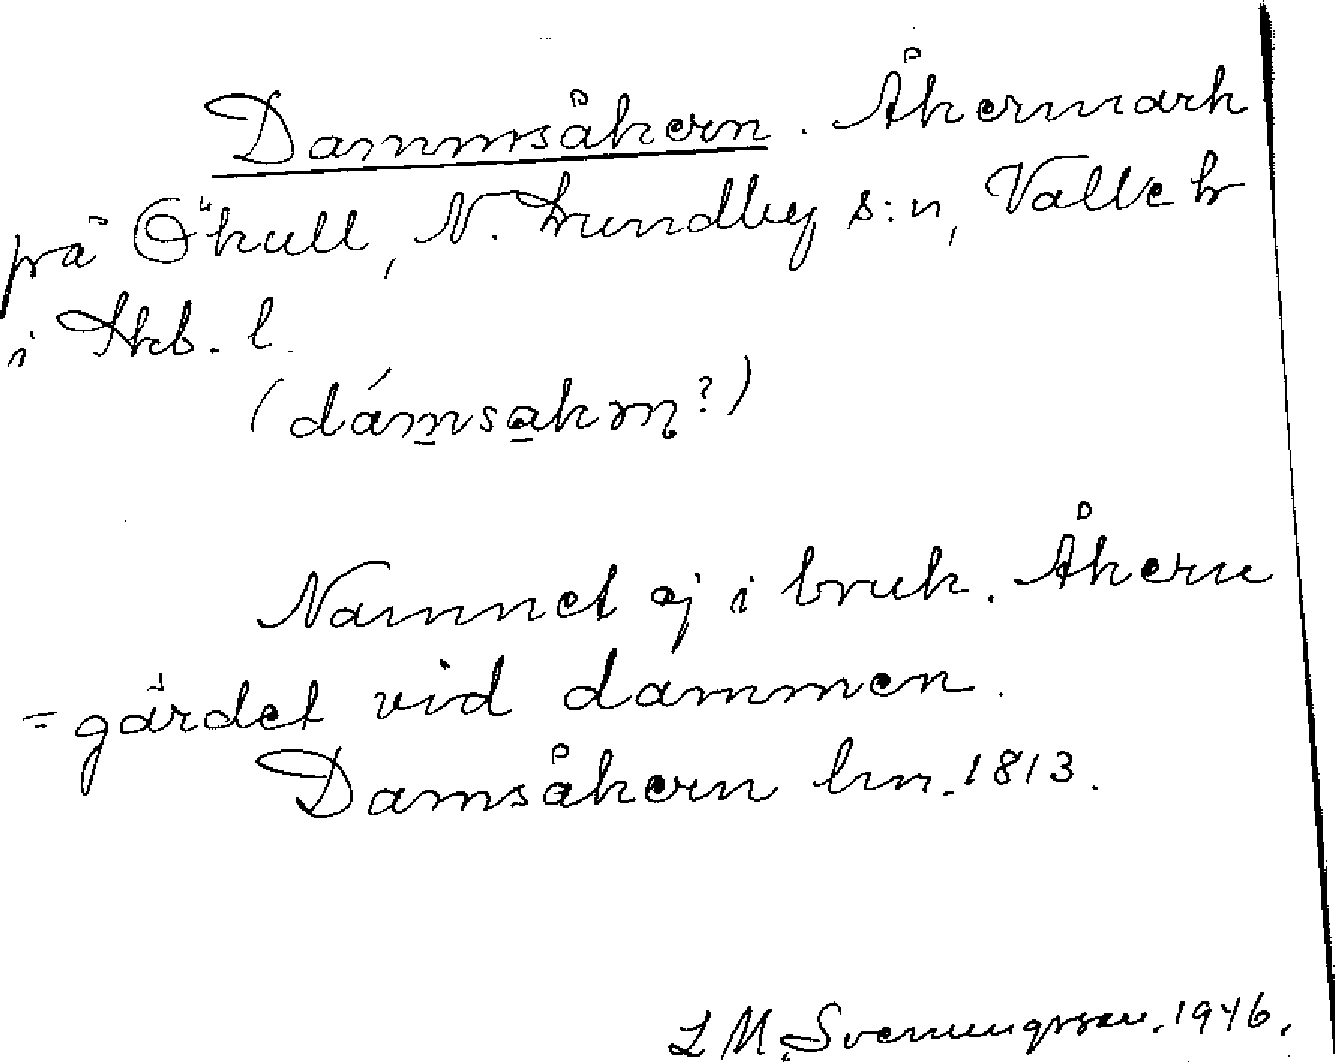 Dammsåkern. Åkermark
på Ökull, N. Lundby s:n, Valle hr
i Skb. l.
(dámsakrn?)
Namnet ej i bruk. Åkern
= gärdet vid dammen.
Damsåkern hm. 1813.
L M Svenungsson. 1946.